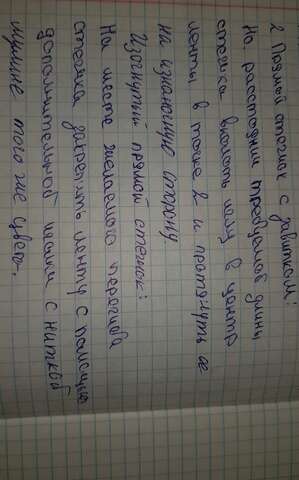 2 Прямой стежок с завитком:
На расстоянии требуемой длины
стежка вколоть иглу в центр
ленты в точке 2 и протянуть ее
на изнаночную сторону
Изогнутый прямой стежок:
На месте желаемого перегиба
стежка закрепить ленту с помощью
дополнительной иглы с ниткой
того же цвета.